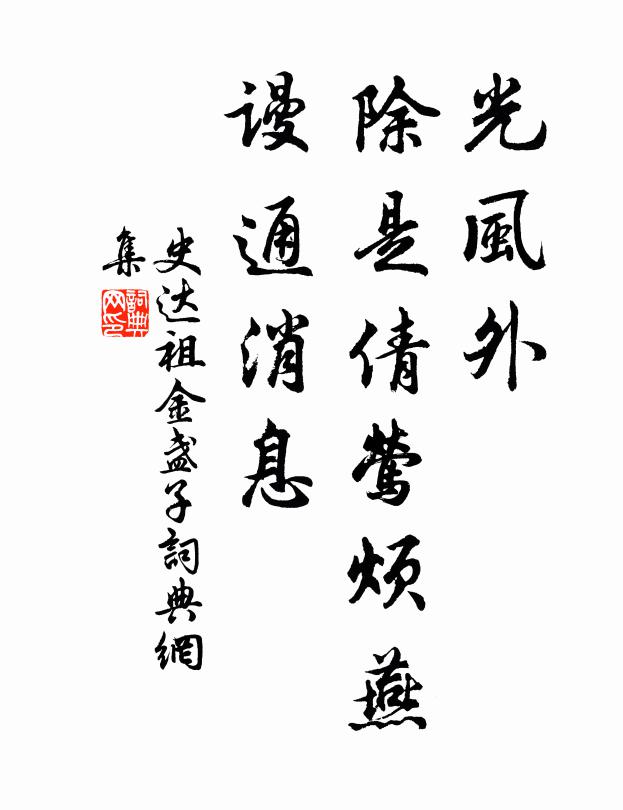 光風外
除是倩鶯煩燕
谩通消息
史达祖金盏子詞典網
集
詞典
网印